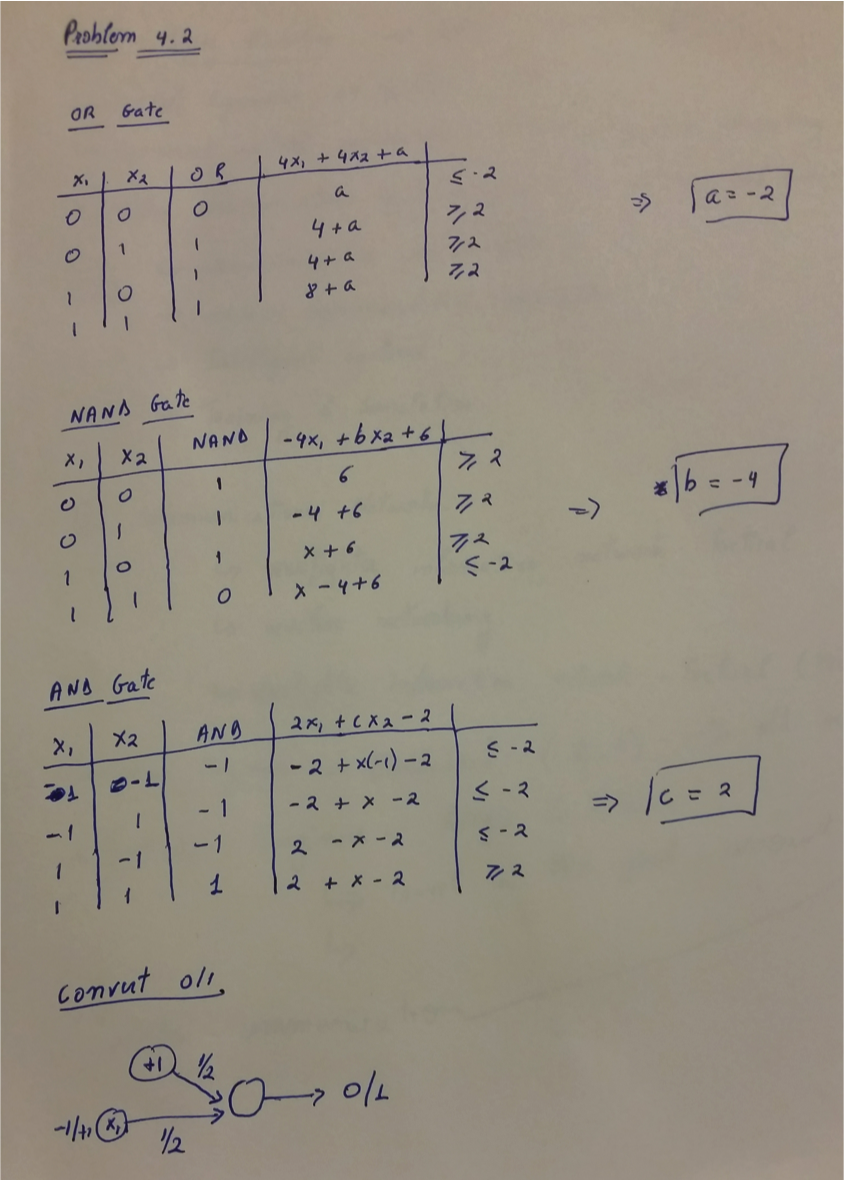 Problem 4.2
OR Gate
x₁ x₂ OR 4x₁ + 4x₂ + a
0 0 0 a ≤ -2
0 1 1 4 + a ⩾ 2
1 0 1 4 + a ⩾ 2
1 1 1 8 + a ⩾ 2
⇒ a = -2
NAND Gate
x₁ x₂ NAND -4x₁ + bx₂ + 6
0 0 1 6 ⩾ 2
0 1 1 -4 + 6 ⩾ 2
1 0 1 x + 6 ⩾ 2
1 1 0 x - 4 + 6 ≤ -2
⇒ b = -4
AND Gate
x₁ x₂ AND 2x₁ + cx₂ - 2
-1 -1 -1 -2 + x(-1) - 2 ≤ -2
-1 1 -1 -2 + x - 2 ≤ -2
1 -1 -1 2 - x - 2 ≤ -2
1 1 1 2 + x - 2 ⩾ 2
⇒ c = 2
Convut 0/1
+1 1/2
0/1
-1/+1 x₁ 1/2